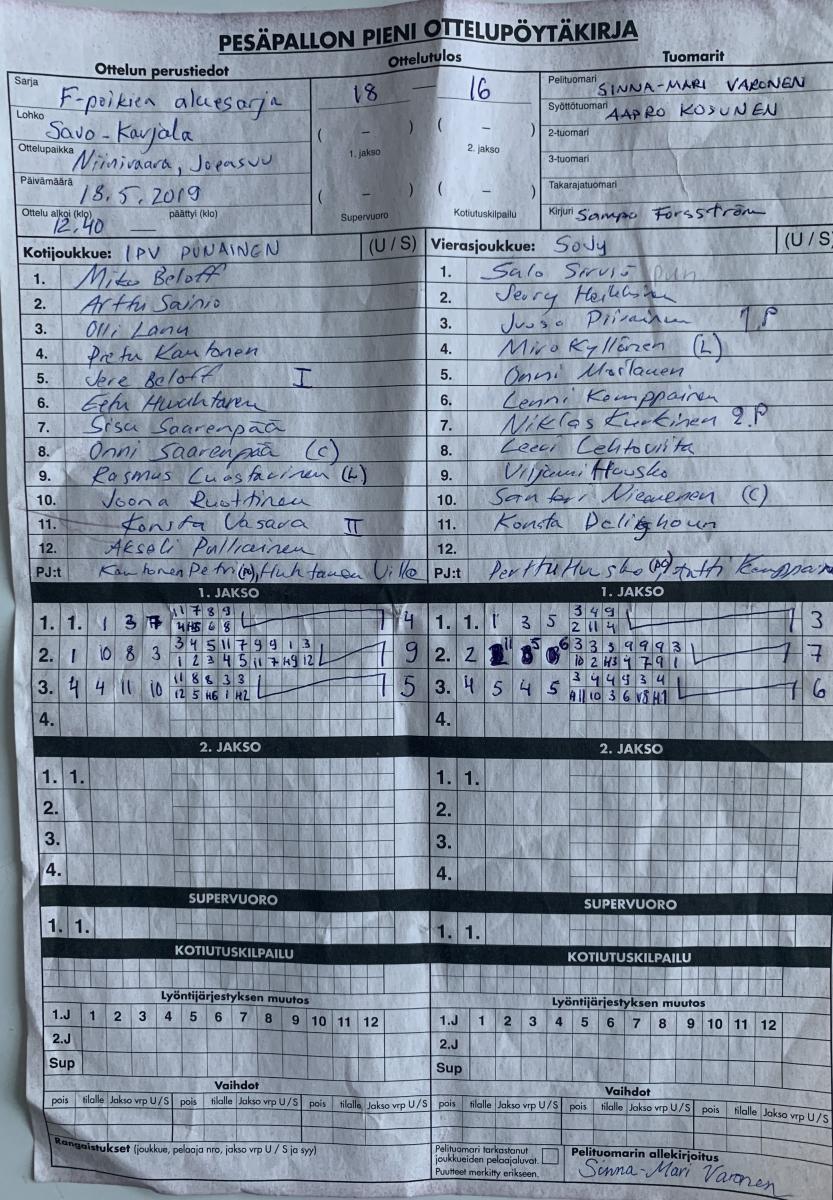 PESÄPALLON PIENI OTTELUPÖYTÄKIRJA
Ottelun perustiedot
Sarja
F-poikien aluesarja
Lohko
Savo-Karjala
Ottelupaikka
Niinivaara, Joensuu
Päivämäärä
18.5.2019
Ottelu alkoi (klo) päättyi (klo)
12.40 —
Ottelutulos
18 — 16
( – ) ( – )
1. jakso 2. jakso
( – ) ( – )
Supervuoro Kotiutuskilpailu
Tuomarit
Pelituomari SINNA-MARI VARONEN
Syöttötuomari AAPRO KOSUNEN
2-tuomari
3-tuomari
Takarajatuomari
Kirjuri Sampo Forsström
Kotijoukkue: IPV PUNAINEN (U / S)
1. Miko Beloff
2. Arttu Sainio
3. Olli
4. Pietu Kantonen
5. Jere Beloff I
6. Eetu
7. Sisu Saarenpää
8. Onni Saarenpää (C)
9. Rasmus (L)
10. Joona Ruottinen
11. Konsta Vasara II
12. Akseli Pulliainen
PJ:t Kantonen Petri (PJ), Huhtanen Ville
Vierasjoukkue: SoJy (U / S)
1. Salo
2. Heikkinen
3. Juuso Piirainen 1.P
4. Miro Kyllönen (L)
5. Onni Moilanen
6. Lenni Komppainen
7. Niklas Kurkinen 2.P
8. Leevi Lehtoviita
9. Viljami Hausko
10. Santeri (C)
11. Konsta
12.
PJ:t Perttu
1. JAKSO
1. 1. 1 3 7
11 7 8 9
6 8
4
2. 1 10 8 3
3 4 5 11 7 9 9 1 3
1 2 3 4 5 11 7 H9 12
9
3. 4 4 11 10
11 8 8 3 3
12 5 H6 1 H2
5
4.
2. JAKSO
1. 1.
2.
3.
4.
SUPERVUORO
1. 1.
KOTIUTUSKILPAILU
Lyöntijärjestyksen muutos
1.J 1 2 3 4 5 6 7 8 9 10 11 12
2.J
Sup
Vaihdot
pois tilalle Jakso vrp U / S pois tilalle Jakso vrp U / S pois tilalle Jakso vrp U / S
Rangaistukset (joukkue, pelaaja nro, jakso vrp U / S ja syy)
1. JAKSO
1. 1. 1 3 5
3 4 9
2 11 4
3
2. 2
3 3 3 9 9 9 3
10 2 H3 4 7 9 1
7
3. 4 5 4 5
3 4 4 9 3 4
10 3 6 V8 H1
6
4.
2. JAKSO
1. 1.
2.
3.
4.
SUPERVUORO
1. 1.
KOTIUTUSKILPAILU
Lyöntijärjestyksen muutos
1.J 1 2 3 4 5 6 7 8 9 10 11 12
2.J
Sup
Vaihdot
pois tilalle Jakso vrp U / S pois tilalle Jakso vrp U / S pois tilalle Jakso vrp U / S
Pelituomari tarkastanut
joukkueiden pelaajaluvat.
Puutteet merkitty erikseen.
Pelituomarin allekirjoitus
Sinna-Mari Varonen